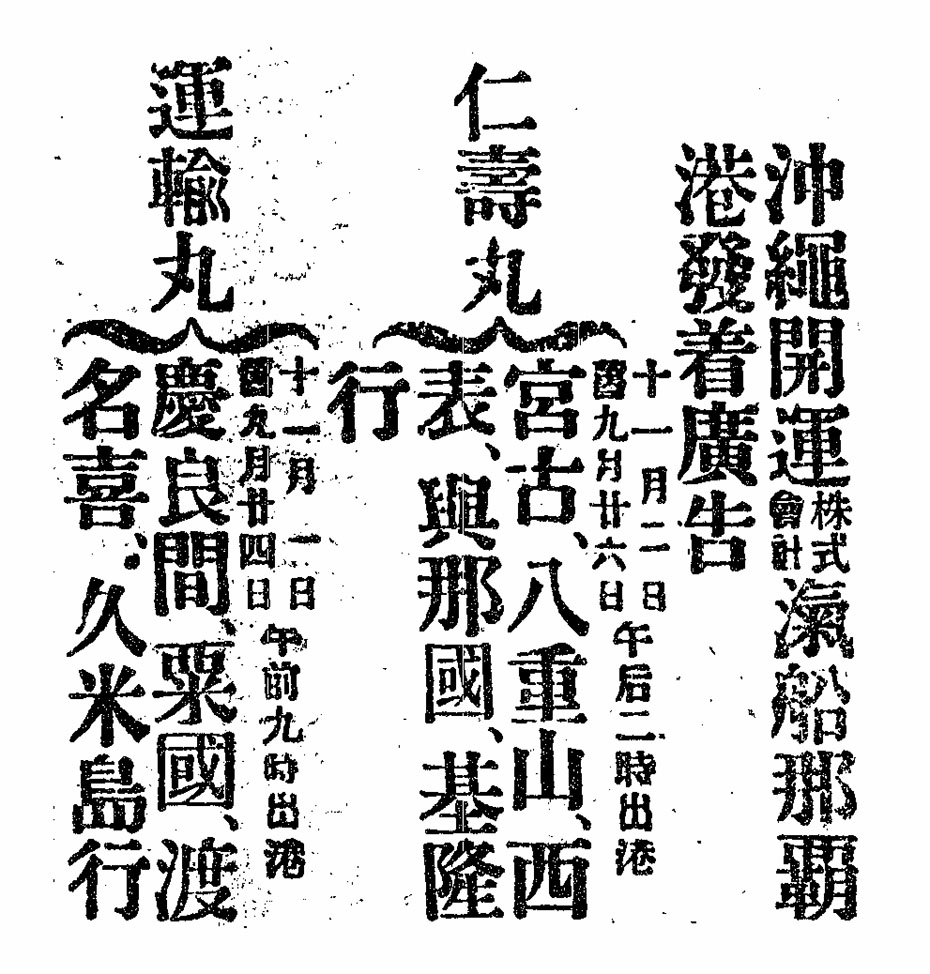 沖繩開運株式會社滊船那覇
港發着廣告
仁壽丸
十一月三日
舊九月廿六日
午后二時出港
宮古、八重山、西
表、與那國、基隆
行
運輸丸
十一月一日
舊九月廿四日
午前九時出港
慶良間、粟國、渡
名喜、久米島行